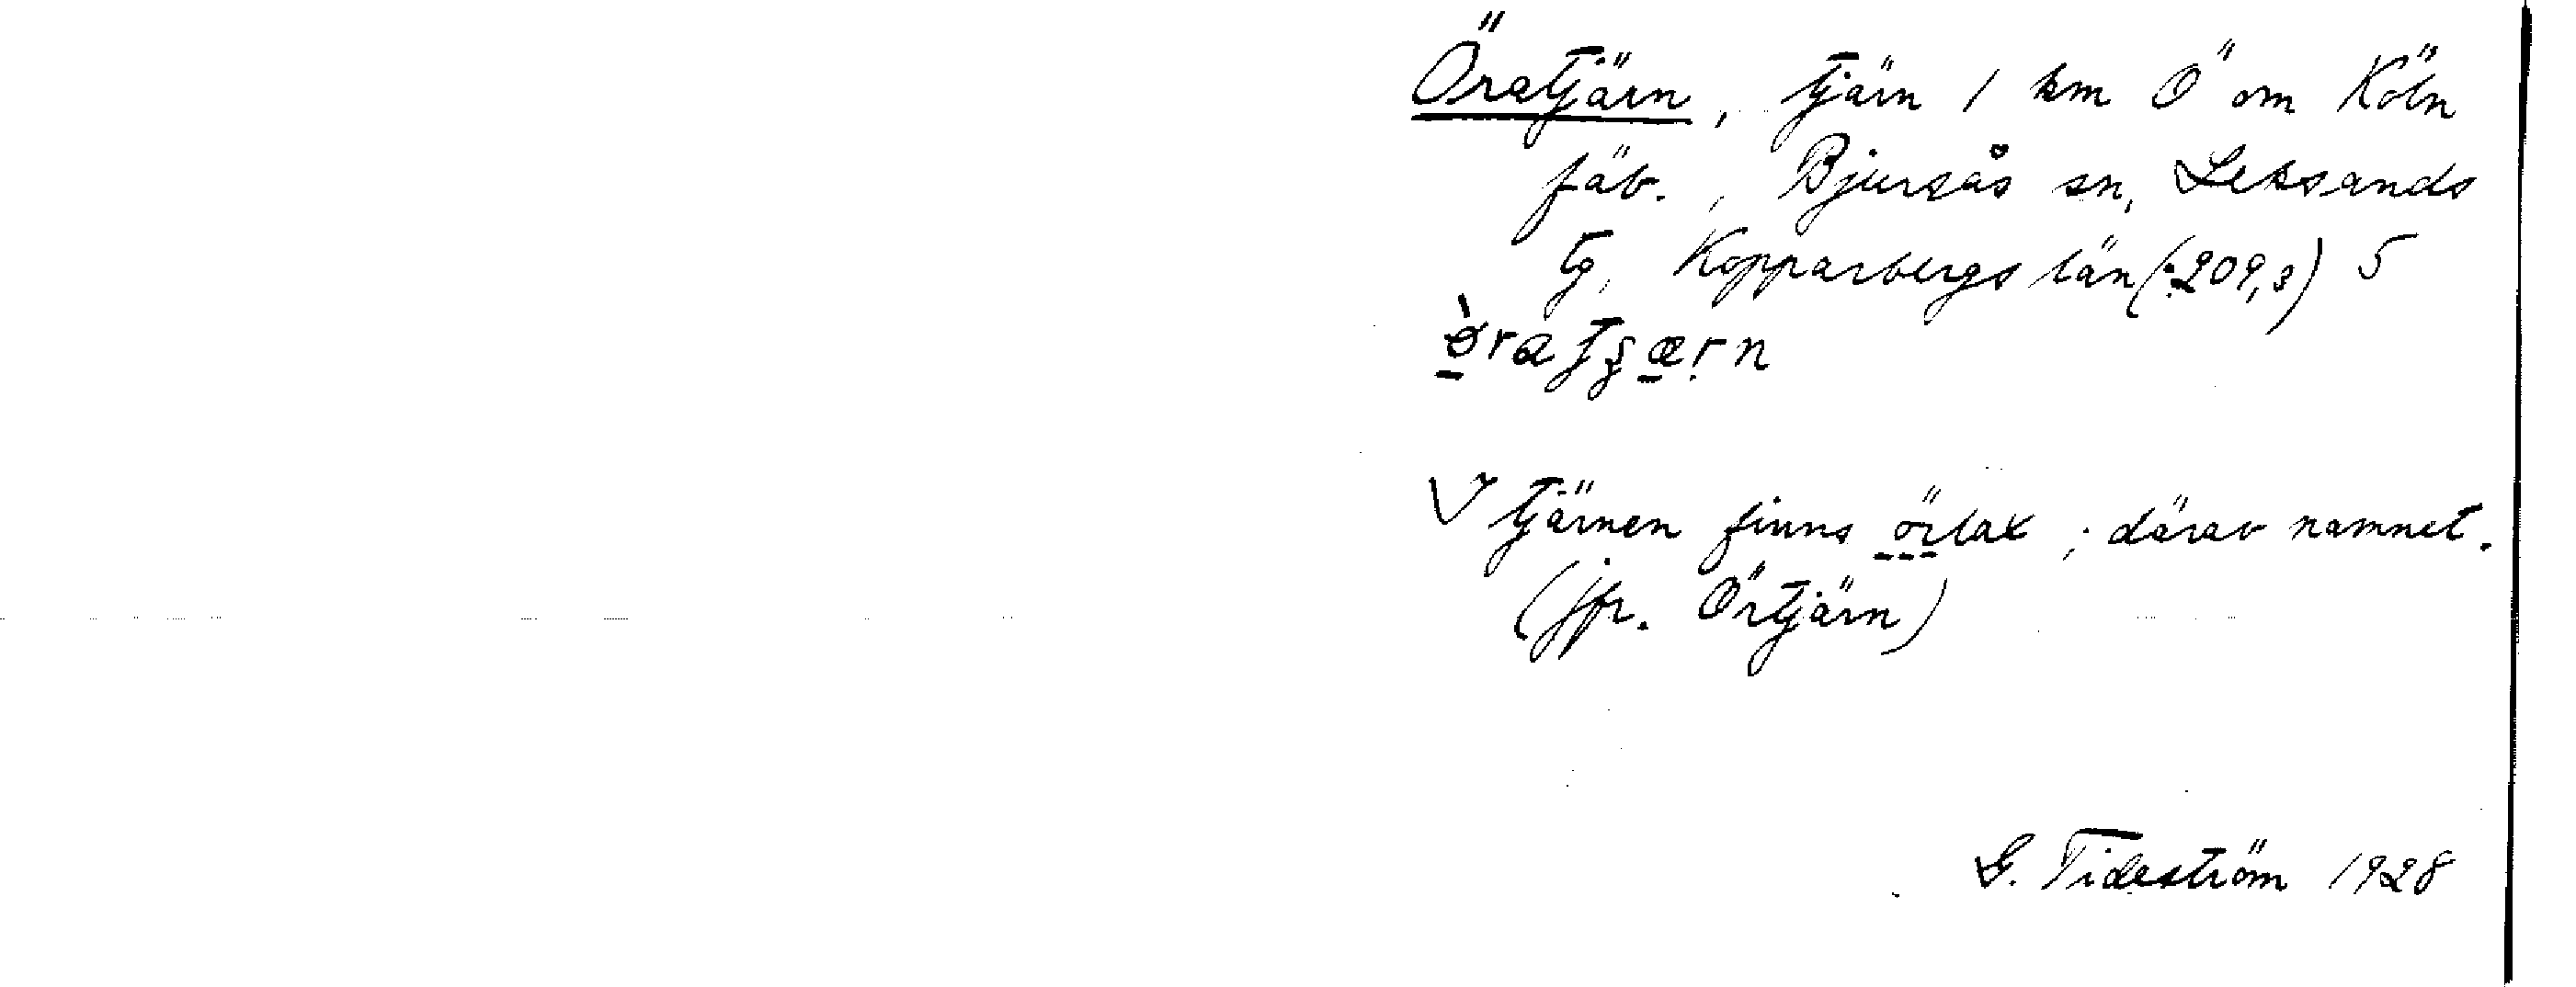 Öratjärn, tjärn 1 km Ö om Köln
fäb., Bjursås sn, Leksands
tg, Kopparbergs län (:209,3) 5
I tjärnen finns örlax; därav namnet.
(jfr. Örtjärn)
G. Tideström 1928